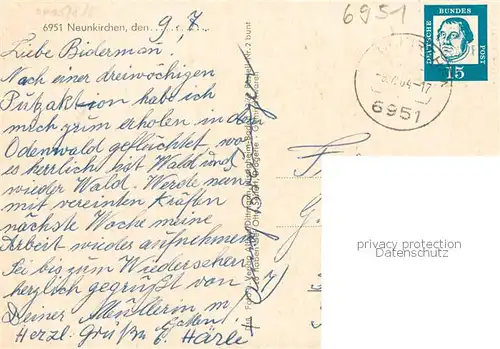 6951 Neunkirchen, den 9. 7.
6951
DEUTSCHE BUNDES POST
15
-9.7.64-17
6951
Liebe Biderman!
Nach einer dreiwöchigen
Putzaktion habe ich
mich zum erholen in den
Odenwald geflüchtet, wo
es herrlich ist Wald und
wieder Wald. Werde nun
mit vereinten Kräften
nächste Woche meine
Arbeit wieder aufnehmen.
Sei bis zum Wiedersehen
herzlich gegrüßt von
Deiner Müllerin
Herzl. Grüße
privacy protection
Datenschutz